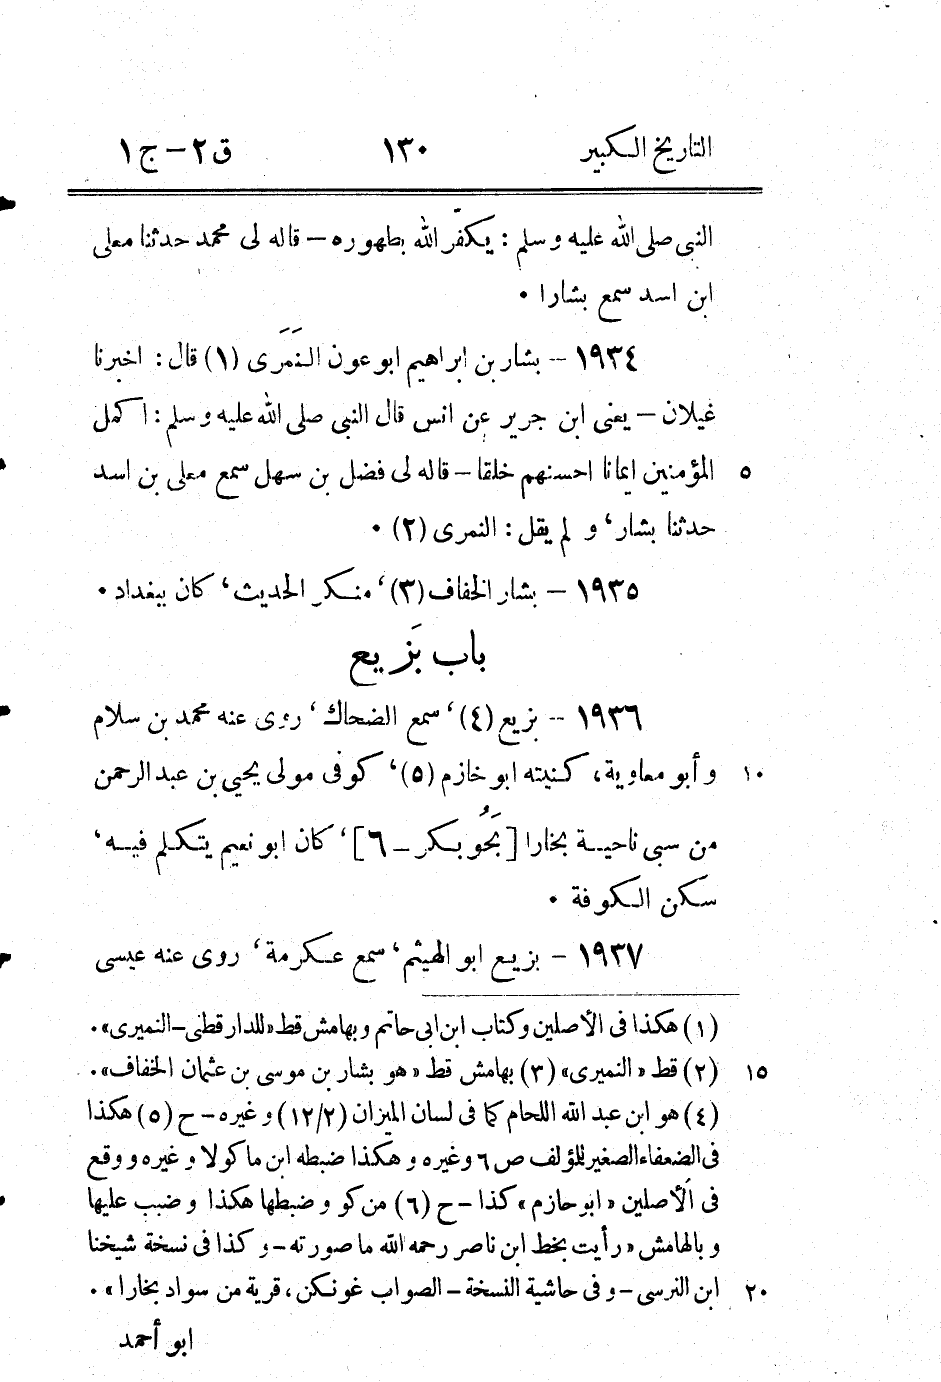 التاريخ الكبير ١٣٠ ق٢ – ج١
النبى صلى الله عليه وسلم : يكفّر الله بطهوره – قاله لى محمد حدثنا معلى
ابن اسد سمع بشارا ٠
١٩٣٤ – بشار بن ابراهيم ابو عون النَمَرى (١) قال : اخبرنا
غيلان – يعنى ابن جرير عن انس قال النبى صلى الله عليه وسلم : اكمل
٥ المؤمنين ايمانا احسنهم خلقا – قاله لى فضل بن سهل سمع معلى بن اسد
حدثنا بشار‘ و لم يقل : النمرى (٢) ٠
١٩٣٥ – بشار الخفاف (٣)‘ منكر الحديث‘ كان ببغداد ٠
باب بَزيع
١٩٣٦ -- بزيع (٤)‘ سمع الضحاك‘ روى عنه محمد بن سلام
١٠ و أبو معاوية، كنيته ابو خازم (٥)‘ كوفى مولى يحيى بن عبد الرحمن
من سبى ناحية بخارا [بَخُو بكر – ٦]‘ كان ابو نعيم يتكلم فيه‘
سكن الكوفة ٠
١٩٣٧ – بزيع ابو الهيثم‘ سمع عكرمة‘ روى عنه عيسى
(١) هكذا فى الأصلين وكتاب ابن ابى حاتم و بهامش قط «للدارقطنى – النميرى» .
١٥ (٢) قط « النميرى» (٣) بهامش قط « هو بشار بن موسى بن عثمان الخفاف» .
(٤) هو ابن عبد الله اللحام كما فى لسان الميزان (١٢/٢) و غيره – ح (٥) هكذا
فى الضعفاء الصغير للؤلف ص ٦ وغيره و هكذا ضبطه ابن ماكولا و غيره و وقع
فى الأصلين « ابو حازم» كذا – ح (٦) من كو و ضبطها هكذا و ضبب عليها
و بالهامش « رأيت بخط ابن ناصر رحمه الله ما صورته – و كذا فى نسخة شيخنا
٢٠ ابن النرسى – و فى حاشية النسخة – الصواب غونكن، قرية من سواد بخارا» .
ابو أحمد